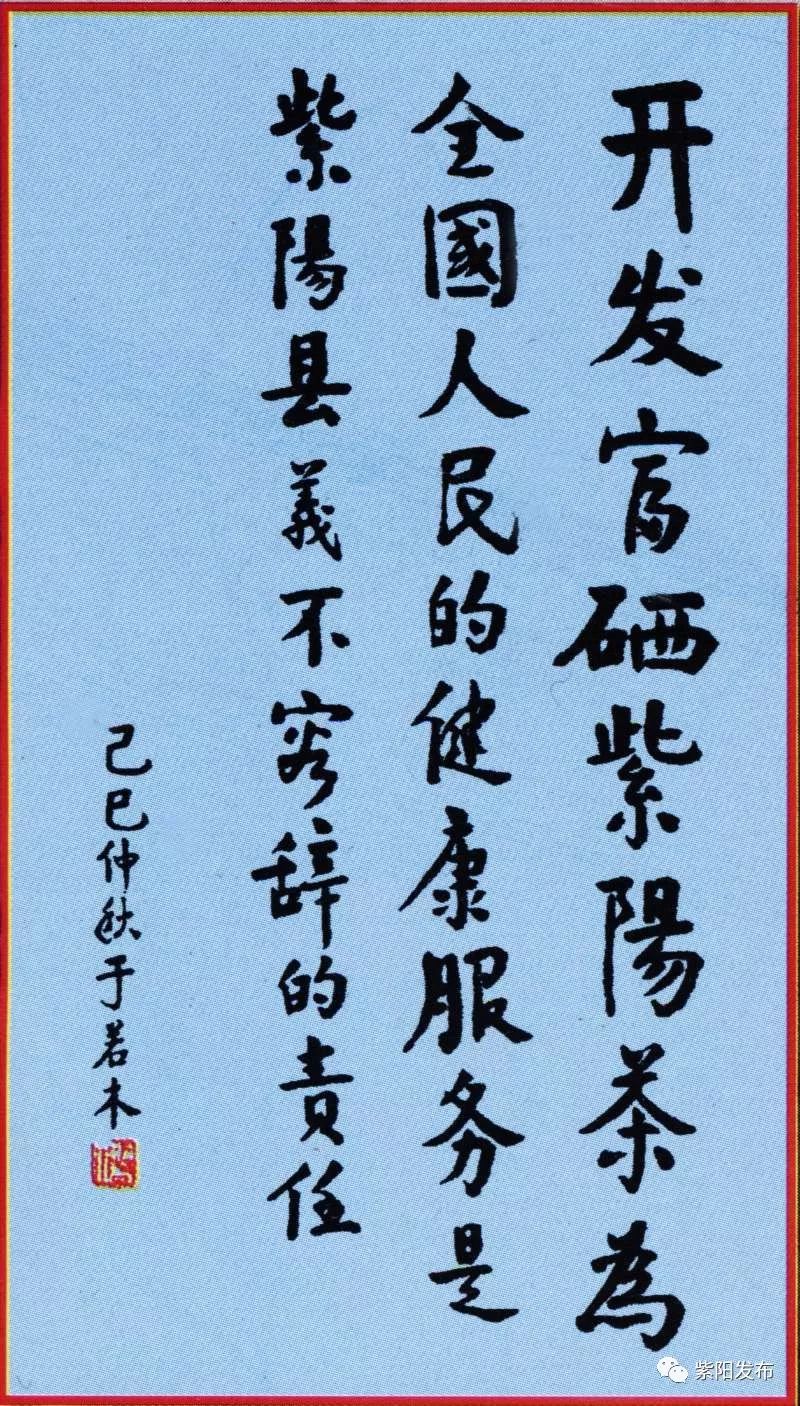 开发富硒紫陽茶為
全國人民的健康服务是
紫陽县義不容辞的责任
己巳仲秋于若木
紫阳发布